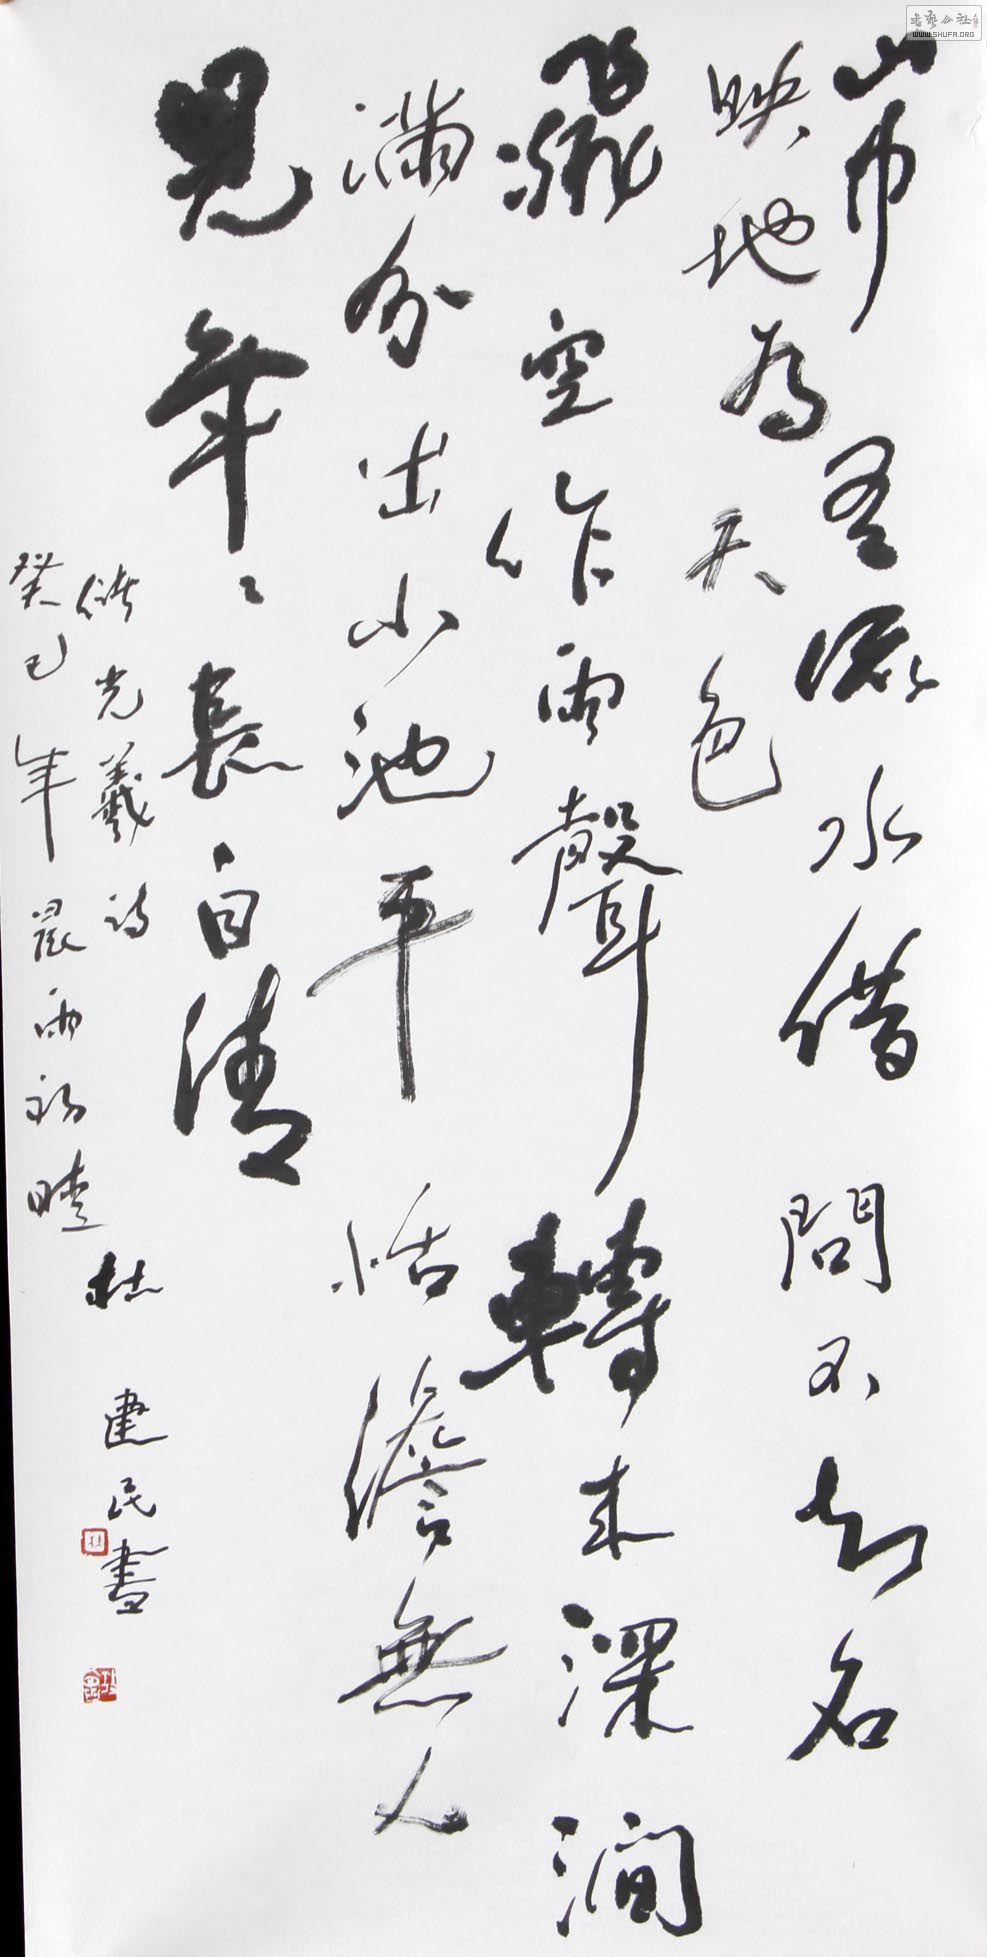 山中有流水借問不知名
映地為天色
飛空作雨聲轉來深澗
滿分出小池平恬澹無人
見年〻長自清
儲光羲詩
癸巳年晨雨初晴杜建民書
書藝公社
WWW.SHUFA.ORG